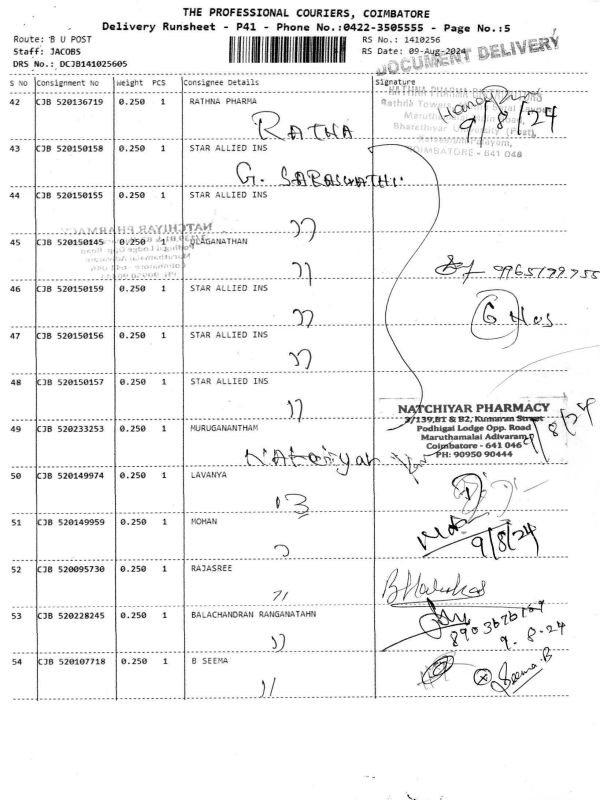 THE PROFESSIONAL COURIERS, COIMBATORE
Delivery Runsheet - P41 - Phone No.:0422-3505555 - Page No.:5
Route: B U POST
RS No.: 1410256
Staff: JACOBS
RS Date: 09-Aug-2024
DRS No.: DCJB141025605
DOCUMENT DELIVERY
S No Consignment No Weight PCS Consignee Details Signature
42 CJB 520136719 0.250 1 RATHNA PHARMA
RATNA
9/8/24
COIMBATORE - 641 046
43 CJB 520150158 0.250 1 STAR ALLIED INS
G. SARASWATHI
44 CJB 520150155 0.250 1 STAR ALLIED INS
NATCHIYAR PHARMACY
45 CJB 520150145 0.250 1 ULAGANATHAN
46 CJB 520150159 0.250 1 STAR ALLIED INS
G Nos
47 CJB 520150156 0.250 1 STAR ALLIED INS
48 CJB 520150157 0.250 1 STAR ALLIED INS
NATCHIYAR PHARMACY
3/139,B1 & B2, Kumaran Street
Podhigai Lodge Opp. Road
Maruthamalai Adivaram,
Coimbatore - 641 046
PH: 90950 90444
9/8/24
49 CJB 520233253 0.250 1 MURUGANANTHAM
50 CJB 520149974 0.250 1 LAVANYA
51 CJB 520149959 0.250 1 MOHAN
9/8/24
52 CJB 520095730 0.250 1 RAJASREE
53 CJB 520228245 0.250 1 BALACHANDRAN RANGANATAHN
9.8.24
54 CJB 520107718 0.250 1 B SEEMA
Seema.B